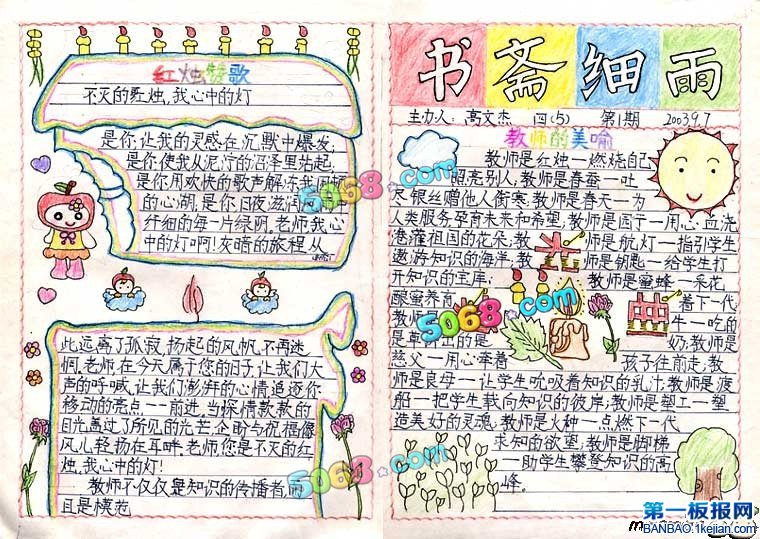 红烛赞歌
不灭的红烛,我心中的灯
是你,让我的灵感在沉默中爆发;
是你使我从泥泞的沼泽里站起;
是你用欢快的歌声解冻我
的心潮,是你日夜滋润
纤细的每一片绿阴,老师我心
中的灯啊!灰暗的旅程,从
此远离了孤寂,扬起的风帆,不再迷
惘,老师,在今天属于您的日子,让我们大
声的呼喊,让我们澎湃的心情追逐你
移动的亮点一一前进,当深情款款的
目光,盖过了所见的光芒,企盼与祝福像
风儿轻扬在耳畔,老师,您是不灭的红
烛,我心中的灯!
教师不仅仅是知识的传播者,而
且是模范
书斋细雨
主办人:高文杰 四(5) 第1期 2003.9.7
教师的美喻
教师是红烛一燃烧自己
照亮别人;教师是春蚕一吐
尽银丝赠他人御寒;教师是春天一为
人类服务,孕育未来和希望;教师是园丁一用心血浇
灌祖国的花朵;教师是航灯一指引学生
遨游知识的海洋;教师是钥匙一给学生打
开知识的宝库;教师是蜜蜂一采花
酿蜜养育着下一代
教师是牛一吃的
是草挤出的是奶;教师是
慈父一用心牵着孩子往前走;教
师是良母一让学生吮吸着知识的乳汁;教师是渡
船一把学生载向知识的彼岸;教师是塑工一塑
造美好的灵魂;教师是火种一点燃下一代
求知的欲望;教师是脚梯
一助学生攀登知识的高
峰。
5068.com
5068.com
5068.com
5068.com
第一板报网
BANBAO.1kejian.com